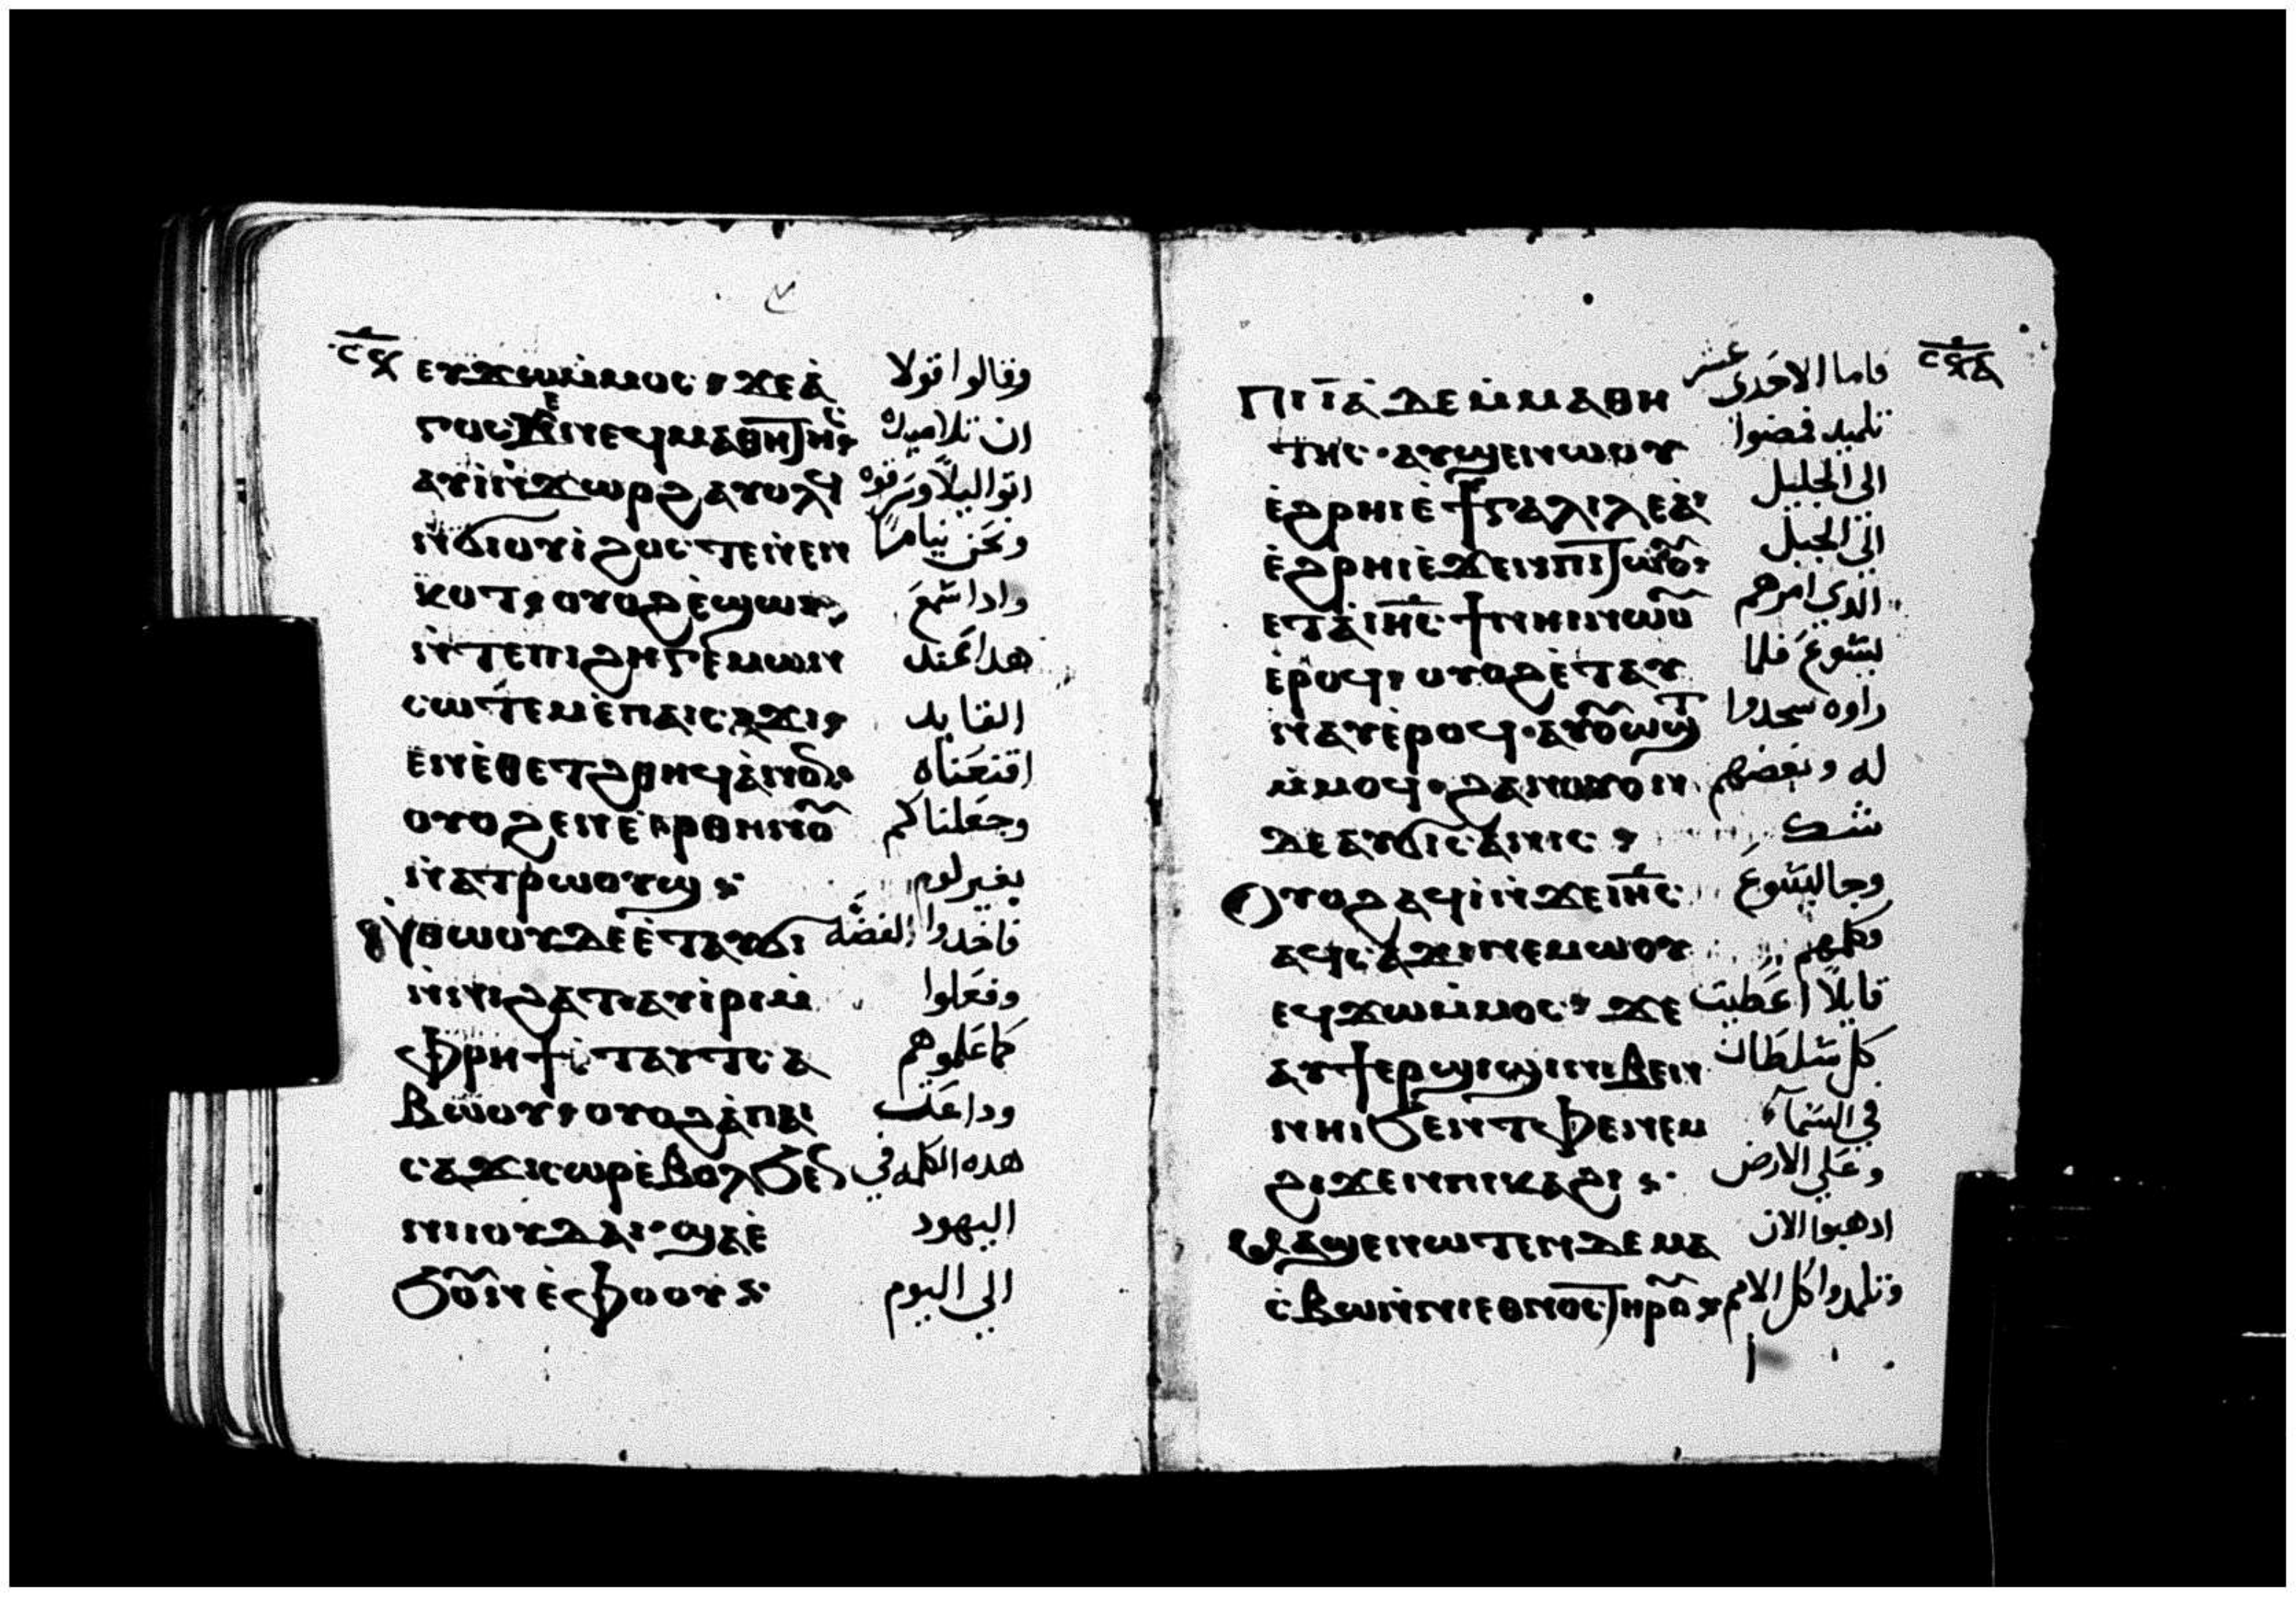 ⲥϥ ⲉⲩϫⲱⲙ̀ⲙⲟⲥ ϫⲉⲁ̀ وقالوا قولا
ϫⲉⲛⲉϥⲙⲁⲑⲏⲧⲏⲥ ان تلاميده
ⲁⲩⲓ̀ⲛ̀ϫⲱⲣϩ ⲁⲩⲟⲗϥ اتوا ليلاً وسرقوه
ⲛ̀ϭⲓⲟⲩⲓ̀ ϩⲟⲥ ⲧⲉⲛⲉⲛ ونحن نياماً
ⲕⲟⲧ ⲟⲩⲟϩ ⲉ̀ϣⲱⲡ وادا سمع
ⲛ̀ⲧⲉⲡⲓϩⲏⲅⲉⲙⲱⲛ هدا عند
ⲥⲱⲧⲉⲙⲉ̀ⲡⲁⲓⲥⲁϫⲓ القايد
ⲉⲛⲉ̀ⲑⲉⲧϩⲑⲏϥⲁ̀ⲛⲟⲛ اقنعناه
ⲟⲩⲟϩ ⲉⲛⲉ̀ⲣⲑⲏⲛⲟⲩ وجعلناكم
ⲛ̀ⲁⲧⲣⲱⲟⲩϣ بغير لوم
ⲛ̀ⲑⲱⲟⲩⲇⲉⲉ̀ⲧⲁⲩϭⲓ فاخدوا الفضه
ⲛ̀ⲛⲓϩⲁⲧ ⲁⲩⲓ̀ⲣⲓⲙ̀ وفعلوا
ⲫⲣⲏϯⲉⲧⲁⲩⲧⲥⲁ كما علموهم
ⲃⲱⲟⲩ ⲟⲩⲟϩ ⲁ̀ⲡⲁⲓ وداعت
ⲥⲁϫⲓⲥⲱⲣⲉ̀ⲃⲟⲗϧⲉⲛ هده الكلمه في
ⲛⲓⲓⲟⲩⲇⲁⲓ ϣⲁⲉ̀ اليهود
ϧⲟⲩⲛⲉ̀ⲫⲟⲟⲩ الى اليوم
ⲡⲓⲓ̅ⲁ̅ ⲇⲉⲙ̀ⲙⲁⲑⲏ فاما الاحدى عشر ⲥϥⲁ
ⲧⲏⲥ ⲁⲩϣⲉⲛⲱⲟⲩ تلميد فمضوا
ⲉ̀ϩⲣⲏⲓⲉ̀ϯⲅⲁⲗⲓⲗⲉⲁ̀ الى الجليل
ⲉ̀ϩⲣⲏⲓⲉ̀ϫⲉⲛⲡⲓⲧⲱⲟⲩ الى الجبل
ⲉⲧⲁⲓⲏⲥ ϯⲛⲏⲓⲛⲱⲟⲩ الدي امرهم
ⲉ̀ⲣⲟϥ ⲟⲩⲟϩ ⲉ̀ⲧⲁⲩ يسوع فلما
ⲛⲁⲩⲉ̀ⲣⲟϥ ⲁⲩⲟⲩⲱϣⲧ راوه سجدوا
ⲙ̀ⲙⲟϥ ϩⲁⲛⲟⲩⲟⲛ له وبعضهم
ⲇⲉⲁⲩϭⲓⲥⲁⲛⲓⲥ شك
ⲟⲩⲟϩ ⲁϥⲓ̀ⲛ̀ϫⲉⲓⲏⲥ وجا يسوع
ⲁϥⲥⲁϫⲓⲛⲉⲙⲱⲟⲩ وكلمهم
ⲉϥϫⲱⲙ̀ⲙⲟⲥ ϫⲉ قايلاً اعطيت
ⲁⲩϯⲉⲣϣⲓϣⲓⲛⲓⲃⲉⲛ كل سلطان
ⲛⲏⲓϧⲉⲛⲧⲫⲉⲛⲉⲙ في السما
ϩⲓϫⲉⲛⲡⲓⲕⲁϩⲓ وعلى الارض
ⲙⲁϣⲉⲛⲱⲧⲉⲛⲇⲉⲙⲁ ادهبوا الان
ⲥ̀ⲃⲱⲛ̀ⲛⲓⲉⲑⲛⲟⲥⲧⲏⲣⲟⲩ وتلمدوا كل الامم